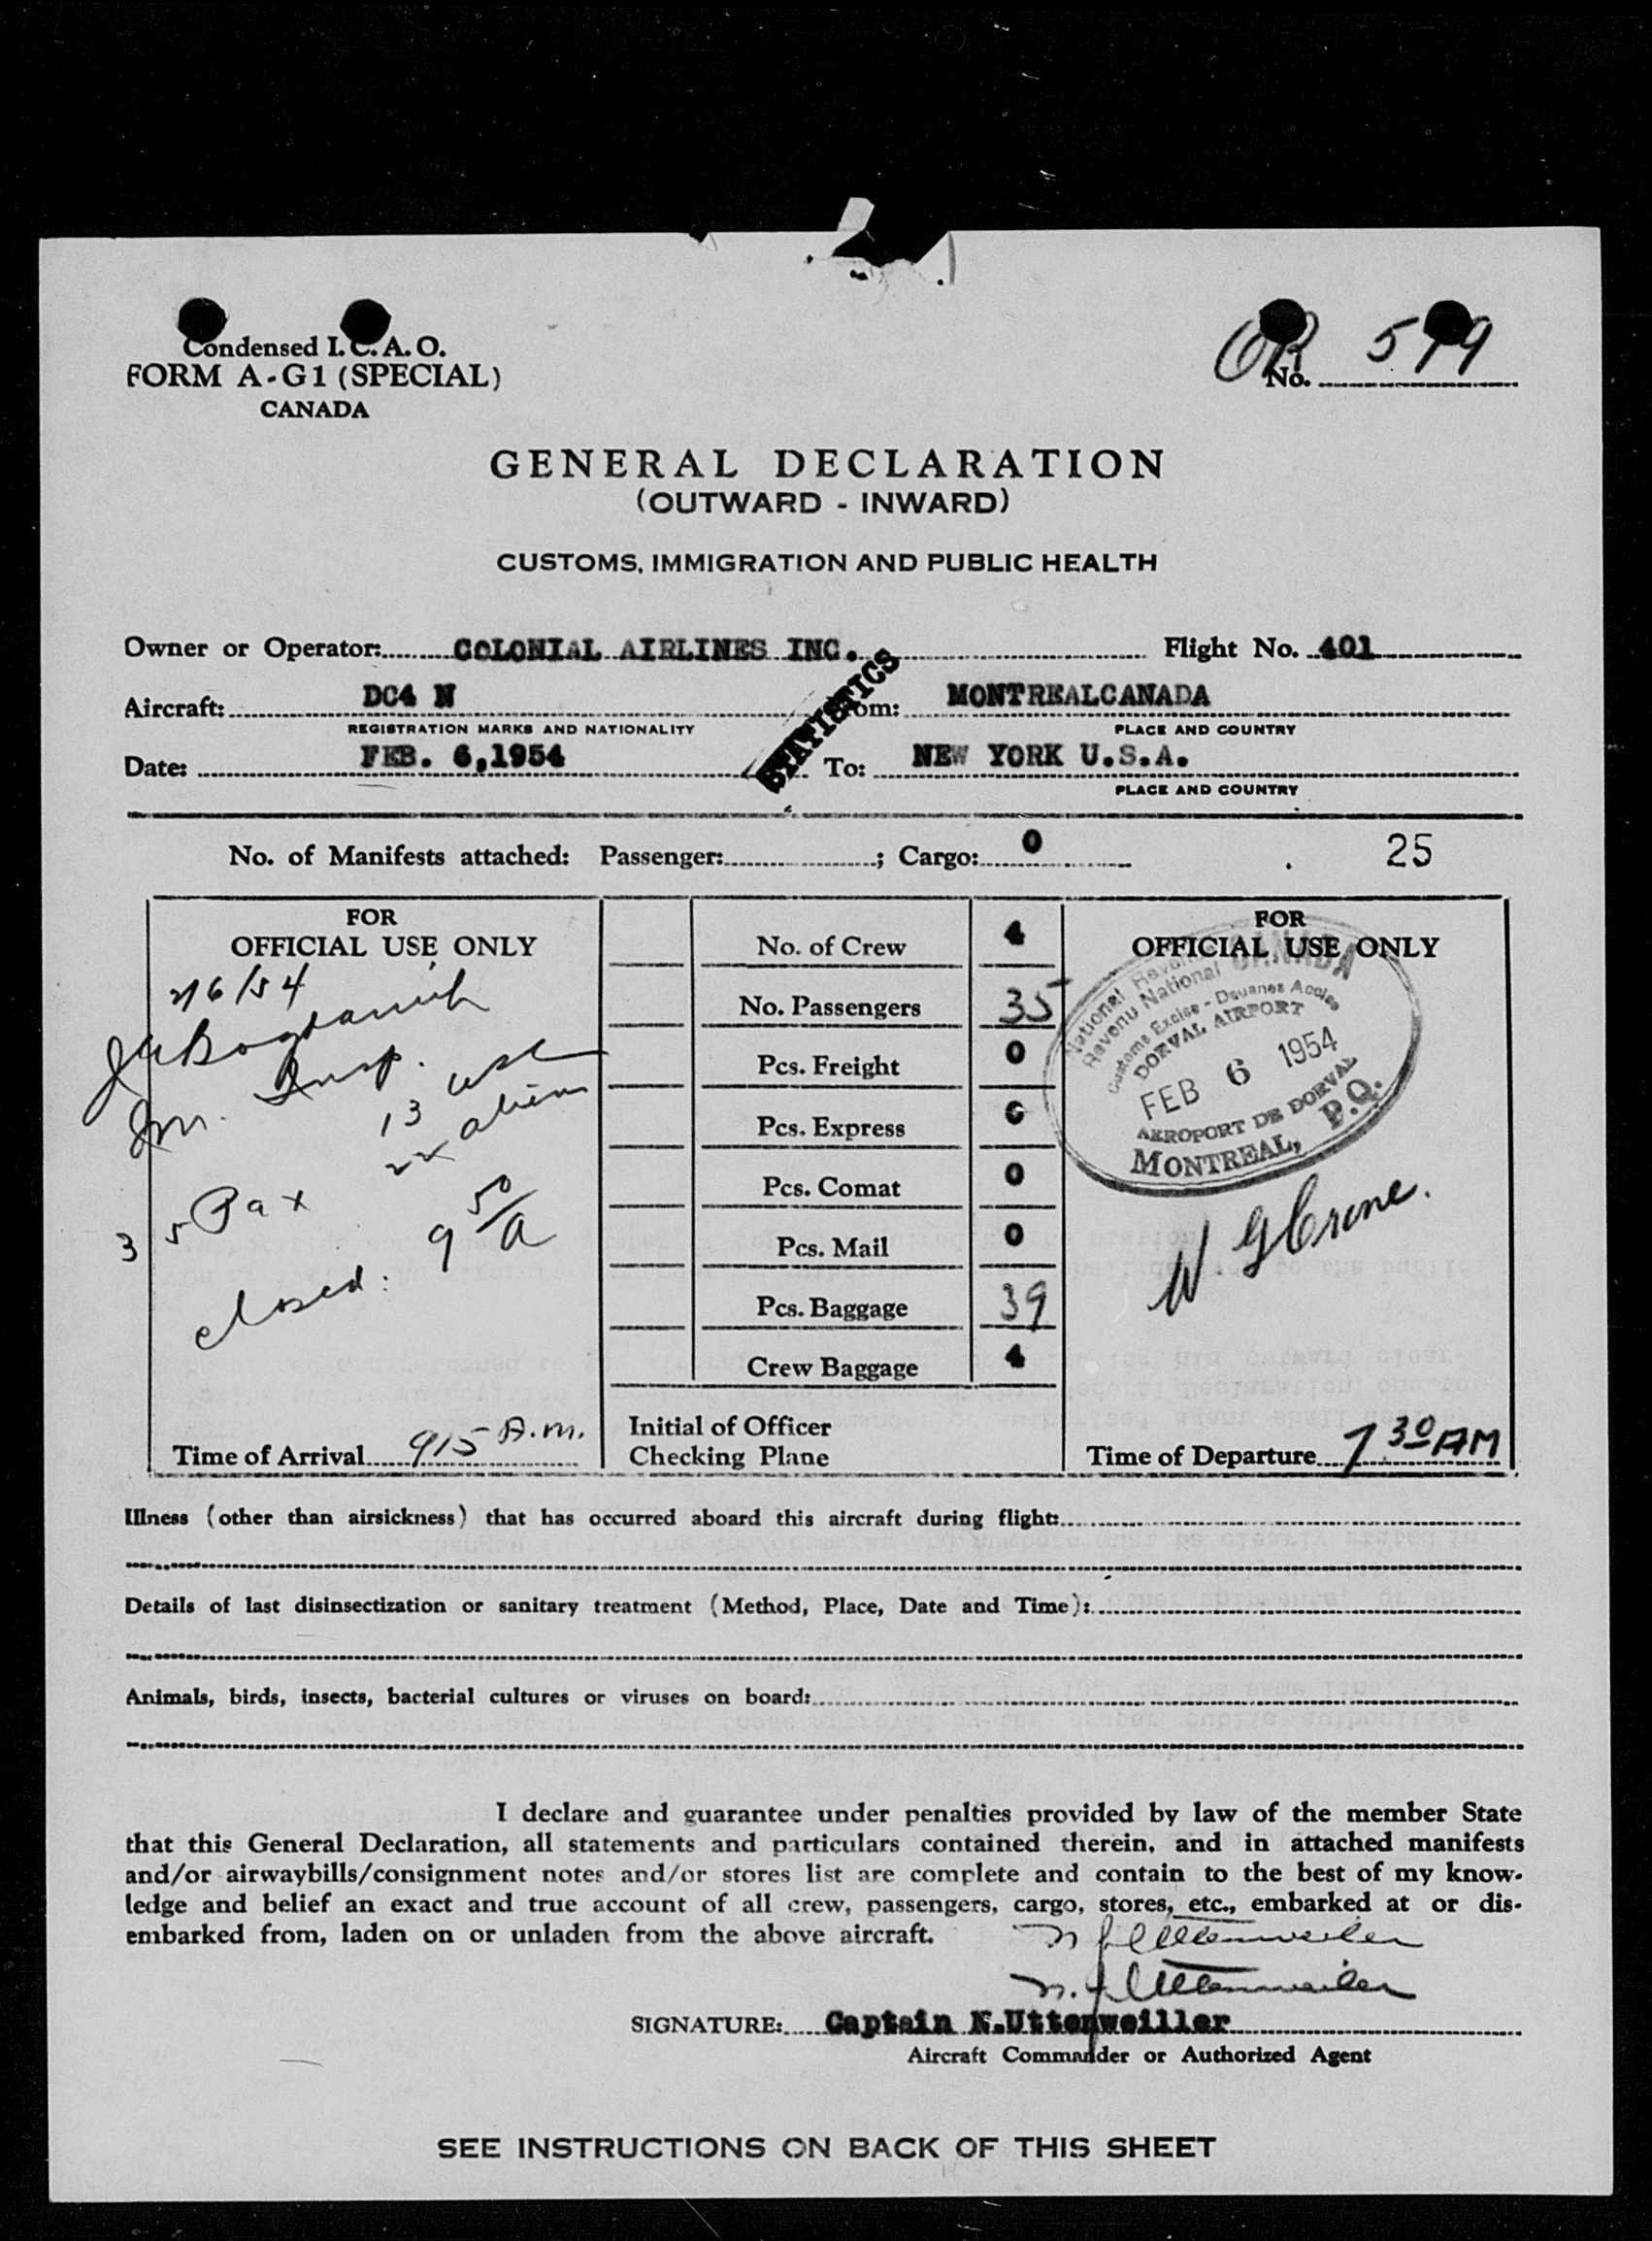 Condensed I.C.A.O.
FORM A-G1 (SPECIAL)
CANADA
No. 599
GENERAL DECLARATION
(OUTWARD - INWARD)
CUSTOMS, IMMIGRATION AND PUBLIC HEALTH
Owner or Operator: COLONIAL AIRLINES INC. Flight No. 401
STATISTICS
Aircraft: DC4 N From: MONTREALCANADA
REGISTRATION MARKS AND NATIONALITY PLACE AND COUNTRY
Date: FEB. 6,1954 To: NEW YORK U.S.A.
PLACE AND COUNTRY
No. of Manifests attached: Passenger: ; Cargo: 0 25
FOR
OFFICIAL USE ONLY
2/6/54
Im. Insp.
13 usc
22 aliens
35 Pax
closed: 9 50/a
Time of Arrival 915 A.m.
No. of Crew 4
No. Passengers 35
Pcs. Freight 0
Pcs. Express 0
Pcs. Comat 0
Pcs. Mail 0
Pcs. Baggage 39
Crew Baggage 4
Initial of Officer
Checking Plane
FOR
OFFICIAL USE ONLY
National Revenue CANADA
Revenu National
Customs Excise - Douanes Accise
DORVAL AIRPORT
FEB 6 1954
AEROPORT DE DORVAL
MONTREAL, P.Q.
Time of Departure 7 30 AM
Illness (other than airsickness) that has occurred aboard this aircraft during flight:
Details of last disinsectization or sanitary treatment (Method, Place, Date and Time):
Animals, birds, insects, bacterial cultures or viruses on board:
I declare and guarantee under penalties provided by law of the member State
that this General Declaration, all statements and particulars contained therein, and in attached manifests
and/or airwaybills/consignment notes and/or stores list are complete and contain to the best of my know-
ledge and belief an exact and true account of all crew, passengers, cargo, stores, etc., embarked at or dis-
embarked from, laden on or unladen from the above aircraft.
N J Uttenweiler
N. J Uttenweiler
SIGNATURE: Captain N.Uttenweiller
Aircraft Commander or Authorized Agent
SEE INSTRUCTIONS ON BACK OF THIS SHEET